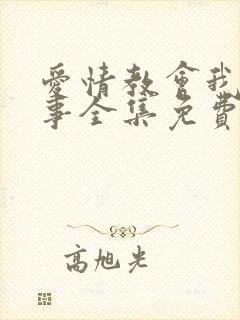 愛情教會我
事全集免費
高旭光